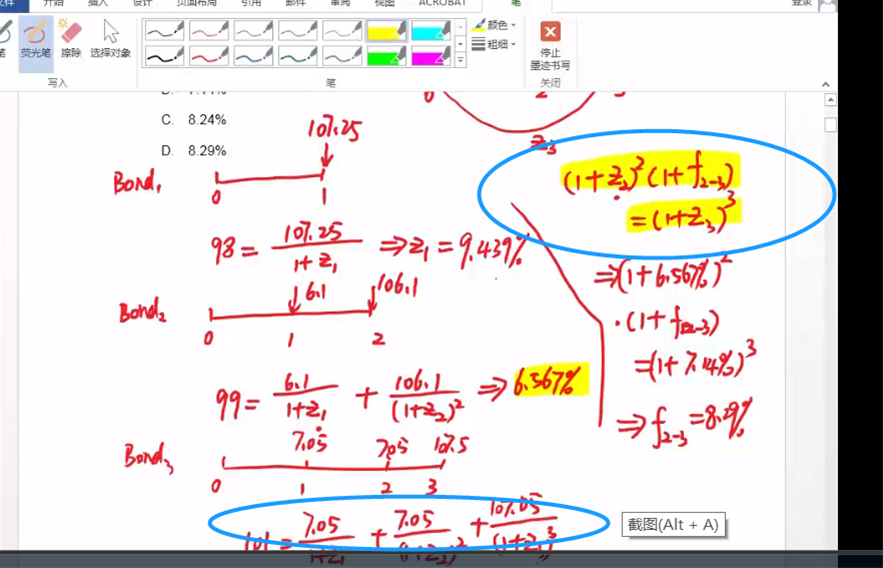 开始
插入
设计
页面布局
引用
邮件
审阅
视图
ACROBAT
笔
登录
荧光笔
擦除
选择对象
颜色
粗细
停止
墨迹书写
写入
笔
关闭
C. 8.24%
D. 8.29%
Z3
107.25
Bond1
0 1
98 = 107.25 / 1+Z1 ⇒ Z1 = 9.439%
6.1 106.1
Bond2
0 1 2
99 = 6.1 / 1+Z1 + 106.1 / (1+Z2)^2 ⇒ 6.567%
7.05 7.05 107.5
Bond3
0 1 2 3
101 = 7.05 / 1+Z1 + 7.05 / (1+Z2)^2 + 107.05 / (1+Z3)^3
(1+Z2)^2 (1+f2-3)
= (1+Z3)^3
⇒ (1+6.567%)^2
· (1+f2-3)
= (1+7.14%)^3
⇒ f2-3 = 8.29%
截图(Alt + A)